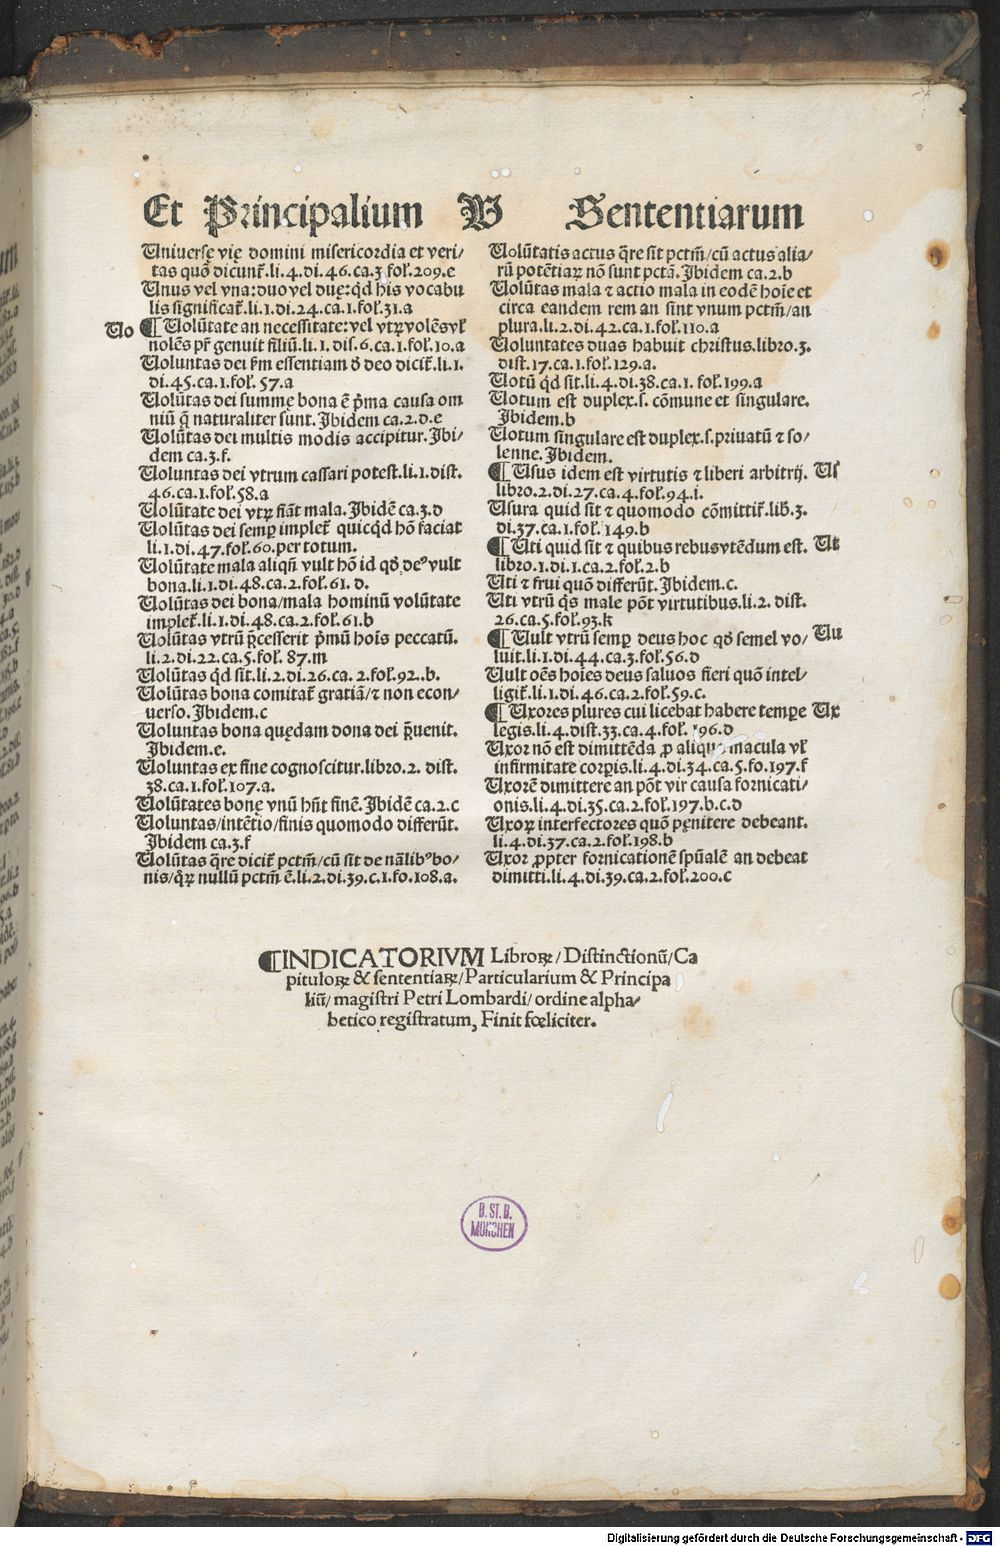 Et Principalium V Sententiarum
Uniuersę vię domini misericordia et veri/
tas quō dicunt̃.li.4.di.46.ca.3.fol̃.209.e
Unus vel vna:duo vel duę:qd̃ his vocabu
lis significat̃.li.1.di.24.ca.1.fol̃.31.a
Uo
¶ Uolũtate an necessitate:vel vtꝝ volẽs vl̃
nolẽs pr̃ genuit filiũ.li.1.dis.6.ca.1.fol̃.10.a
Uoluntas dei ẜm essentiam ð deo dicit̃.li.1.
di.45.ca.1.fol̃.57.a
Uolũtas dei summę bona ẽ p̃ma causa om
niũ q̃ naturaliter sunt. Ibidem ca.2.d.e
Uolũtas dei multis modis accipitur. Ibi/
dem ca.3.f.
Uoluntas dei vtrum cassari potest.li.1.dist.
46.ca.1.fol̃.58.a
Uolũtate dei vtꝝ fiãt mala. Ibidẽ ca.3.d
Uolũtas dei semꝑ implet̃ quicq̃d hõ faciat
li.1.di.47.fol̃.60.per totum.
Uolũtate mala aliqñ vult hõ id qð deꝰ vult
bona.li.1.di.48.ca.2.fol̃.61.d.
Uolũtas dei bona/mala hominũ volũtate
implet̃.li.1.di.48.ca.2.fol̃.61.b
Uolũtas vtrũ p̃cesserit p̃mũ hois peccatũ.
li.2.di.22.ca.5.fol̃.87.m
Uolũtas q̃d sit.li.2.di.26.ca.2.fol̃.92.b.
Uolũtas bona comitat̃ gratiã/⁊ non econ/
uerso. Ibidem.c
Uoluntas bona quędam dona dei p̃uenit.
Ibidem.e.
Uoluntas ex fine cognoscitur.libro.2. dist.
38.ca.1.fol̃.107.a.
Uolũtates bonę vnũ hñt finẽ. Ibidẽ ca.2.c
Uoluntas/intẽtio/finis quomodo differũt.
Ibidem ca.3.f
Uolũtas q̃re dicit̃ pctm̃/cũ sit de nãlibꝰ bo/
nis/q̃ꝝ nullũ pctm̃ ẽ.li.2.di.39.c.1.fo.108.a.
Uolũtatis actus q̃re sit pctm̃/cũ actus alia/
rũ potẽtiaꝝ nõ sunt pctã. Ibidem ca.2.b
Uolũtas mala ⁊ actio mala in eodẽ hoĩe et
circa eandem rem an sint vnum pctm̃/an
plura.li.2.di.42.ca.1.fol̃.110.a
Uoluntates duas habuit christus.libro.3.
dist.17.ca.1.fol̃.129.a.
Uotũ q̃d sit.li.4.di.38.ca.1. fol̃.199.a
Uotum est duplex.s. cõmune et singulare.
Ibidem.b
Uotum singulare est duplex.s.priuatũ ⁊ so/
lenne. Ibidem.
¶ Usus idem est virtutis ⁊ liberi arbitrij. Us
libro.2.di.27.ca.4.fol̃.94.i.
Usura quid sit ⁊ quomodo cõmittit̃.lib̃.3.
di.37.ca.1.fol̃.149.b
¶ Uti quid sit ⁊ quibus rebus vtẽdum est. Ut
libro.1.di.1.ca.2.fol̃.2.b
Uti ⁊ frui quõ differũt. Ibidem.c.
Uti vtrũ q̃s male põt virtutibus.li.2. dist.
26.ca.5.fol̃.93.k
¶ Uult vtrũ semꝑ deus hoc qð semel vo/ Uu
luit.li.1.di.44.ca.3.fol̃.56.d
Uult oẽs hoĩes deus saluos fieri quõ intel/
ligit̃.li.1.di.46.ca.2.fol̃.59.c.
¶ Uxores plures cui licebat habere tempe Ux
legis.li.4.dist.33.ca.4.fol̃. 196.d
Uxor nõ est dimittẽda ꝓ aliqua macula vl̃
infirmitate corꝑis.li.4.di.34.ca.5.fo.197.f
Uxorẽ dimittere an põt vir causa fornicati/
onis.li.4.di.35.ca.2.fol̃.197.b.c.d
Uxoꝝ interfectores quõ pęnitere debeant.
li.4.di.37.ca.2.fol̃.198.b
Uxor ꝓpter fornicationẽ sp̃ualẽ an debeat
dimitti.li.4.di.39.ca.2.fol̃.200.c
¶INDICATORIVM Libroꝝ/Distinctionũ/Ca
pituloꝝ & sententiaꝝ/Particularium & Principa
liũ/magistri Petri Lombardi/ordine alpha/
betico registratum, Finit fœliciter.
B. ST. B.
MÜNCHEN
Digitalisierung gefördert durch die Deutsche Forschungsgemeinschaft - DFG